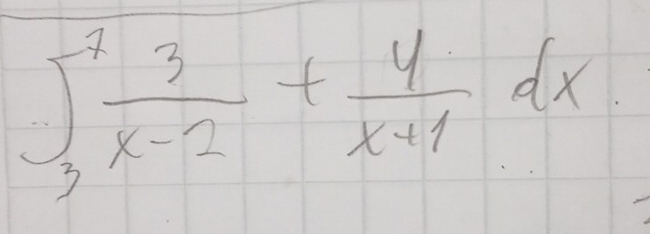 ∫_3^7 3/(x-2) + 4/(x+1) dx.